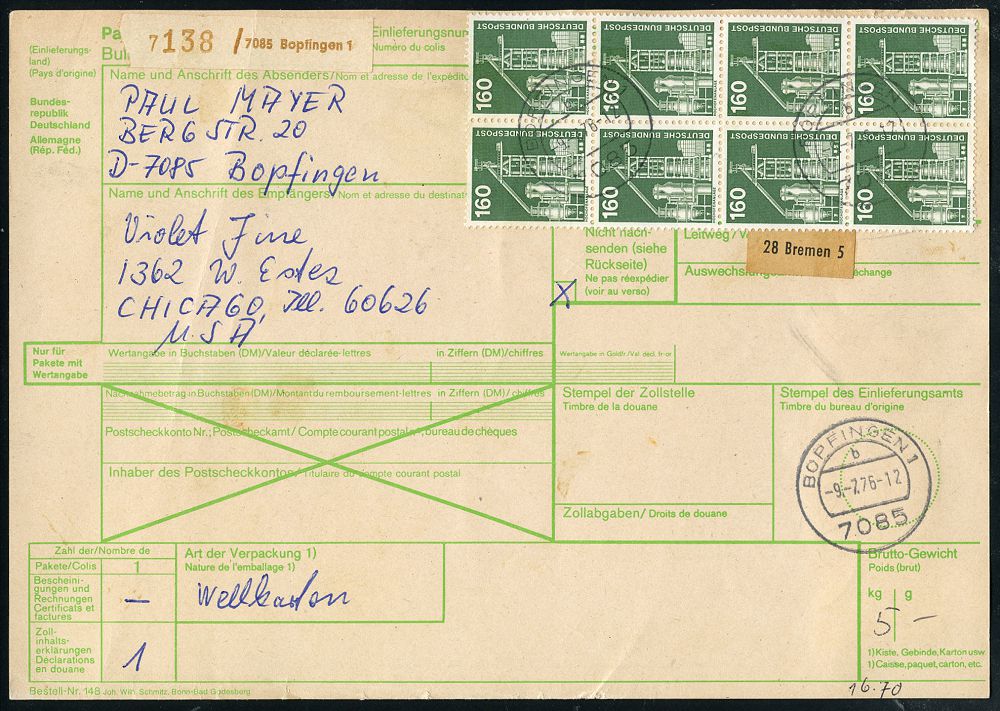 Pa
Bul
7138 / 7085 Bopfingen 1
Einlieferungsnu
Numéro du colis
(Einlieferungs-
land)
(Pays d'origine)
Bundes-
republik
Deutschland
Allemagne
(Rép. Féd.)
Name und Anschrift des Absenders/Nom et adresse de l'expédite
PAUL MAYER
BERGSTR. 20
D-7085 Bopfingen
Name und Anschrift des Empfängers/Nom et adresse du destinat
Violet Fine
1362 W. Estes
CHICAGO, Ill. 60626
U.S.A.
DEUTSCHE BUNDESPOST
160
DEUTSCHE BUNDESPOST
160
DEUTSCHE BUNDESPOST
160
DEUTSCHE BUNDESPOST
160
DEUTSCHE BUNDESPOST
160
DEUTSCHE BUNDESPOST
160
DEUTSCHE BUNDESPOST
160
DEUTSCHE BUNDESPOST
160
7085
Nicht nach-
senden (siehe
Rückseite)
Ne pas réexpédier
(voir au verso)
X
Leitweg/V
28 Bremen 5
Auswechslung
change
Nur für
Pakete mit
Wertangabe
Wertangabe in Buchstaben (DM)/Valeur déclarée-lettres
in Ziffern (DM)/chiffres
Wertangabe in Goldfr./Val. décl. fr-or
Nachnahmebetrag in Buchstaben (DM)/Montant du remboursement-lettres
in Ziffern (DM)/chiffres
Postscheckkonto Nr.; Postscheckamt/Compte courant postal n°, bureau de chèques
Inhaber des Postscheckkontos/Titulaire du compte courant postal
Stempel der Zollstelle
Timbre de la douane
Stempel des Einlieferungsamts
Timbre du bureau d'origine
BOPFINGEN 1
b
-9.-7.76-12
7085
Zollabgaben/Droits de douane
Zahl der/Nombre de
Pakete/Colis
1
Beschei-
gungen und
Rechnungen
Certificats et
factures
—
Zoll-
inhalts-
erklärungen
Déclarations
en douane
1
Art der Verpackung 1)
Nature de l'emballage 1)
Wellkarton
Brutto-Gewicht
Poids (brut)
kg
g
5 -
1) Kiste, Gebinde, Karton usw
1) Caisse, paquet, carton, etc.
Bestell-Nr. 148 Joh. Wilh. Schmitz, Bonn-Bad Godesberg
16.70